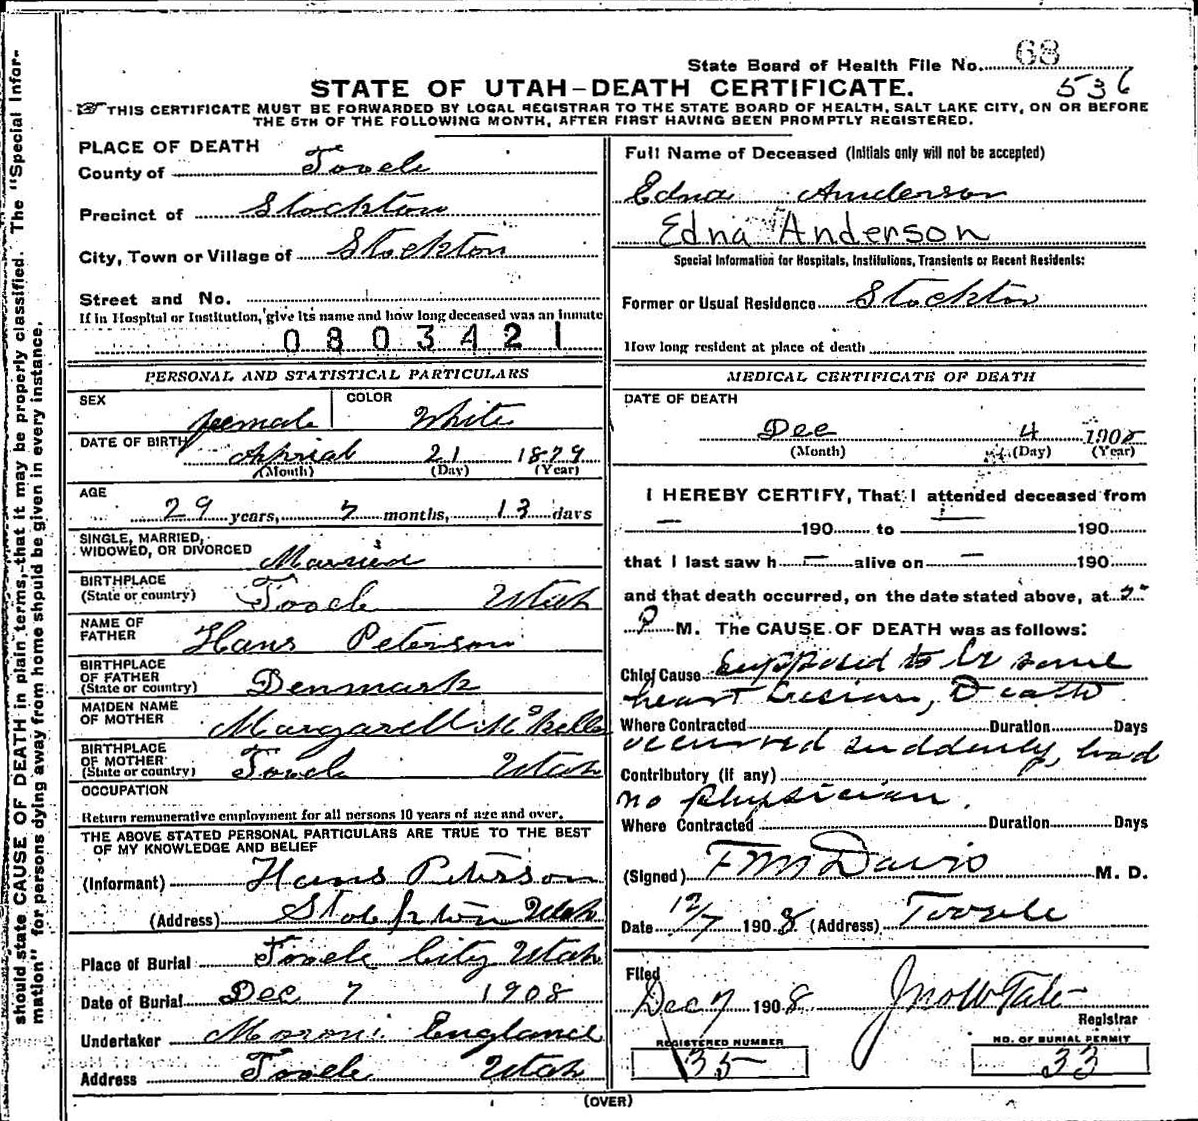 should state CAUSE OF DEATH in plain terms, that it may be properly classified. The "Special Infor-
mation" for persons dying away from home should be given in every instance.
State Board of Health File No. 68
536
STATE OF UTAH-DEATH CERTIFICATE.
THIS CERTIFICATE MUST BE FORWARDED BY LOCAL REGISTRAR TO THE STATE BOARD OF HEALTH, SALT LAKE CITY, ON OR BEFORE
THE 5TH OF THE FOLLOWING MONTH, AFTER FIRST HAVING BEEN PROMPTLY REGISTERED.
PLACE OF DEATH
County of Tooele
Precinct of Stockton
City, Town or Village of Stockton
Street and No.
If in Hospital or Institution, give its name and how long deceased was an inmate
0803421
PERSONAL AND STATISTICAL PARTICULARS
SEX female COLOR White
DATE OF BIRTH Aprial 21 1879
(Month) (Day) (Year)
AGE
29 years, 7 months, 13 days
SINGLE, MARRIED,
WIDOWED, OR DIVORCED Married
BIRTHPLACE
(State or country) Tooele Utah
NAME OF
FATHER Hans Peterson
BIRTHPLACE
OF FATHER
(State or country) Denmark
MAIDEN NAME
OF MOTHER Margarett McKeller
BIRTHPLACE
OF MOTHER
(State or country) Tooele Utah
OCCUPATION
Return remunerative employment for all persons 10 years of age and over.
THE ABOVE STATED PERSONAL PARTICULARS ARE TRUE TO THE BEST
OF MY KNOWLEDGE AND BELIEF
(Informant) Hans Peterson
(Address) Utah
Place of Burial Tooele City Utah
Date of Burial Dec 7 1908
Undertaker Moroni England
Address Tooele Utah
Full Name of Deceased (Initials only will not be accepted)
Edna Anderson
Edna Anderson
Special Information for Hospitals, Institutions, Transients or Recent Residents:
Former or Usual Residence Stockton
How long resident at place of death
MEDICAL CERTIFICATE OF DEATH
DATE OF DEATH
Dec 4 1908
(Month) (Day) (Year)
I HEREBY CERTIFY, That I attended deceased from
— 190 to — 190
that I last saw h — alive on — 190
and that death occurred, on the date stated above, at
P M. The CAUSE OF DEATH was as follows:
Chief Cause Supposed to be some
heart lesion, Death
Where Contracted Duration Days
occurred suddenly, had
Contributory (if any)
no physician.
Where Contracted Duration Days
(Signed) F M Davis M. D.
Date 12/7 1908 (Address) Tooele
Filed
Dec 7 1908 Jno W Tate
Registrar
REGISTERED NUMBER
35
NO. OF BURIAL PERMIT
33
(OVER)